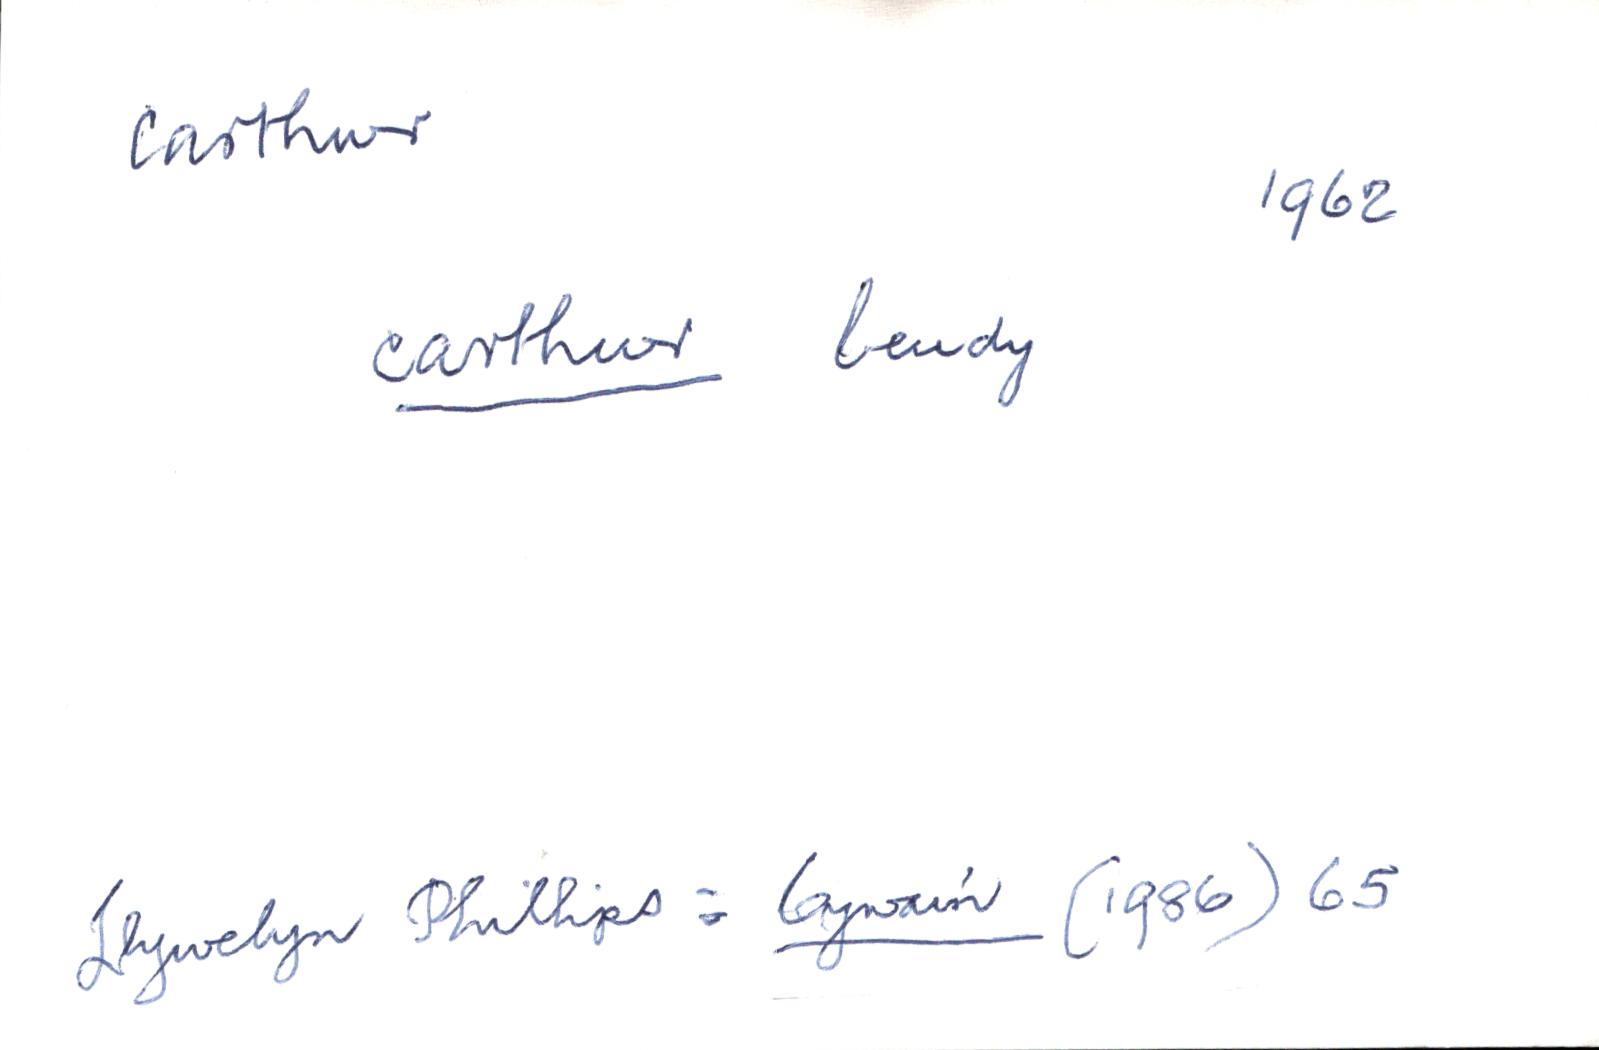 carthwr
1962
carthwr beudy
Llywelyn Phillips : Cywain (1986) 65